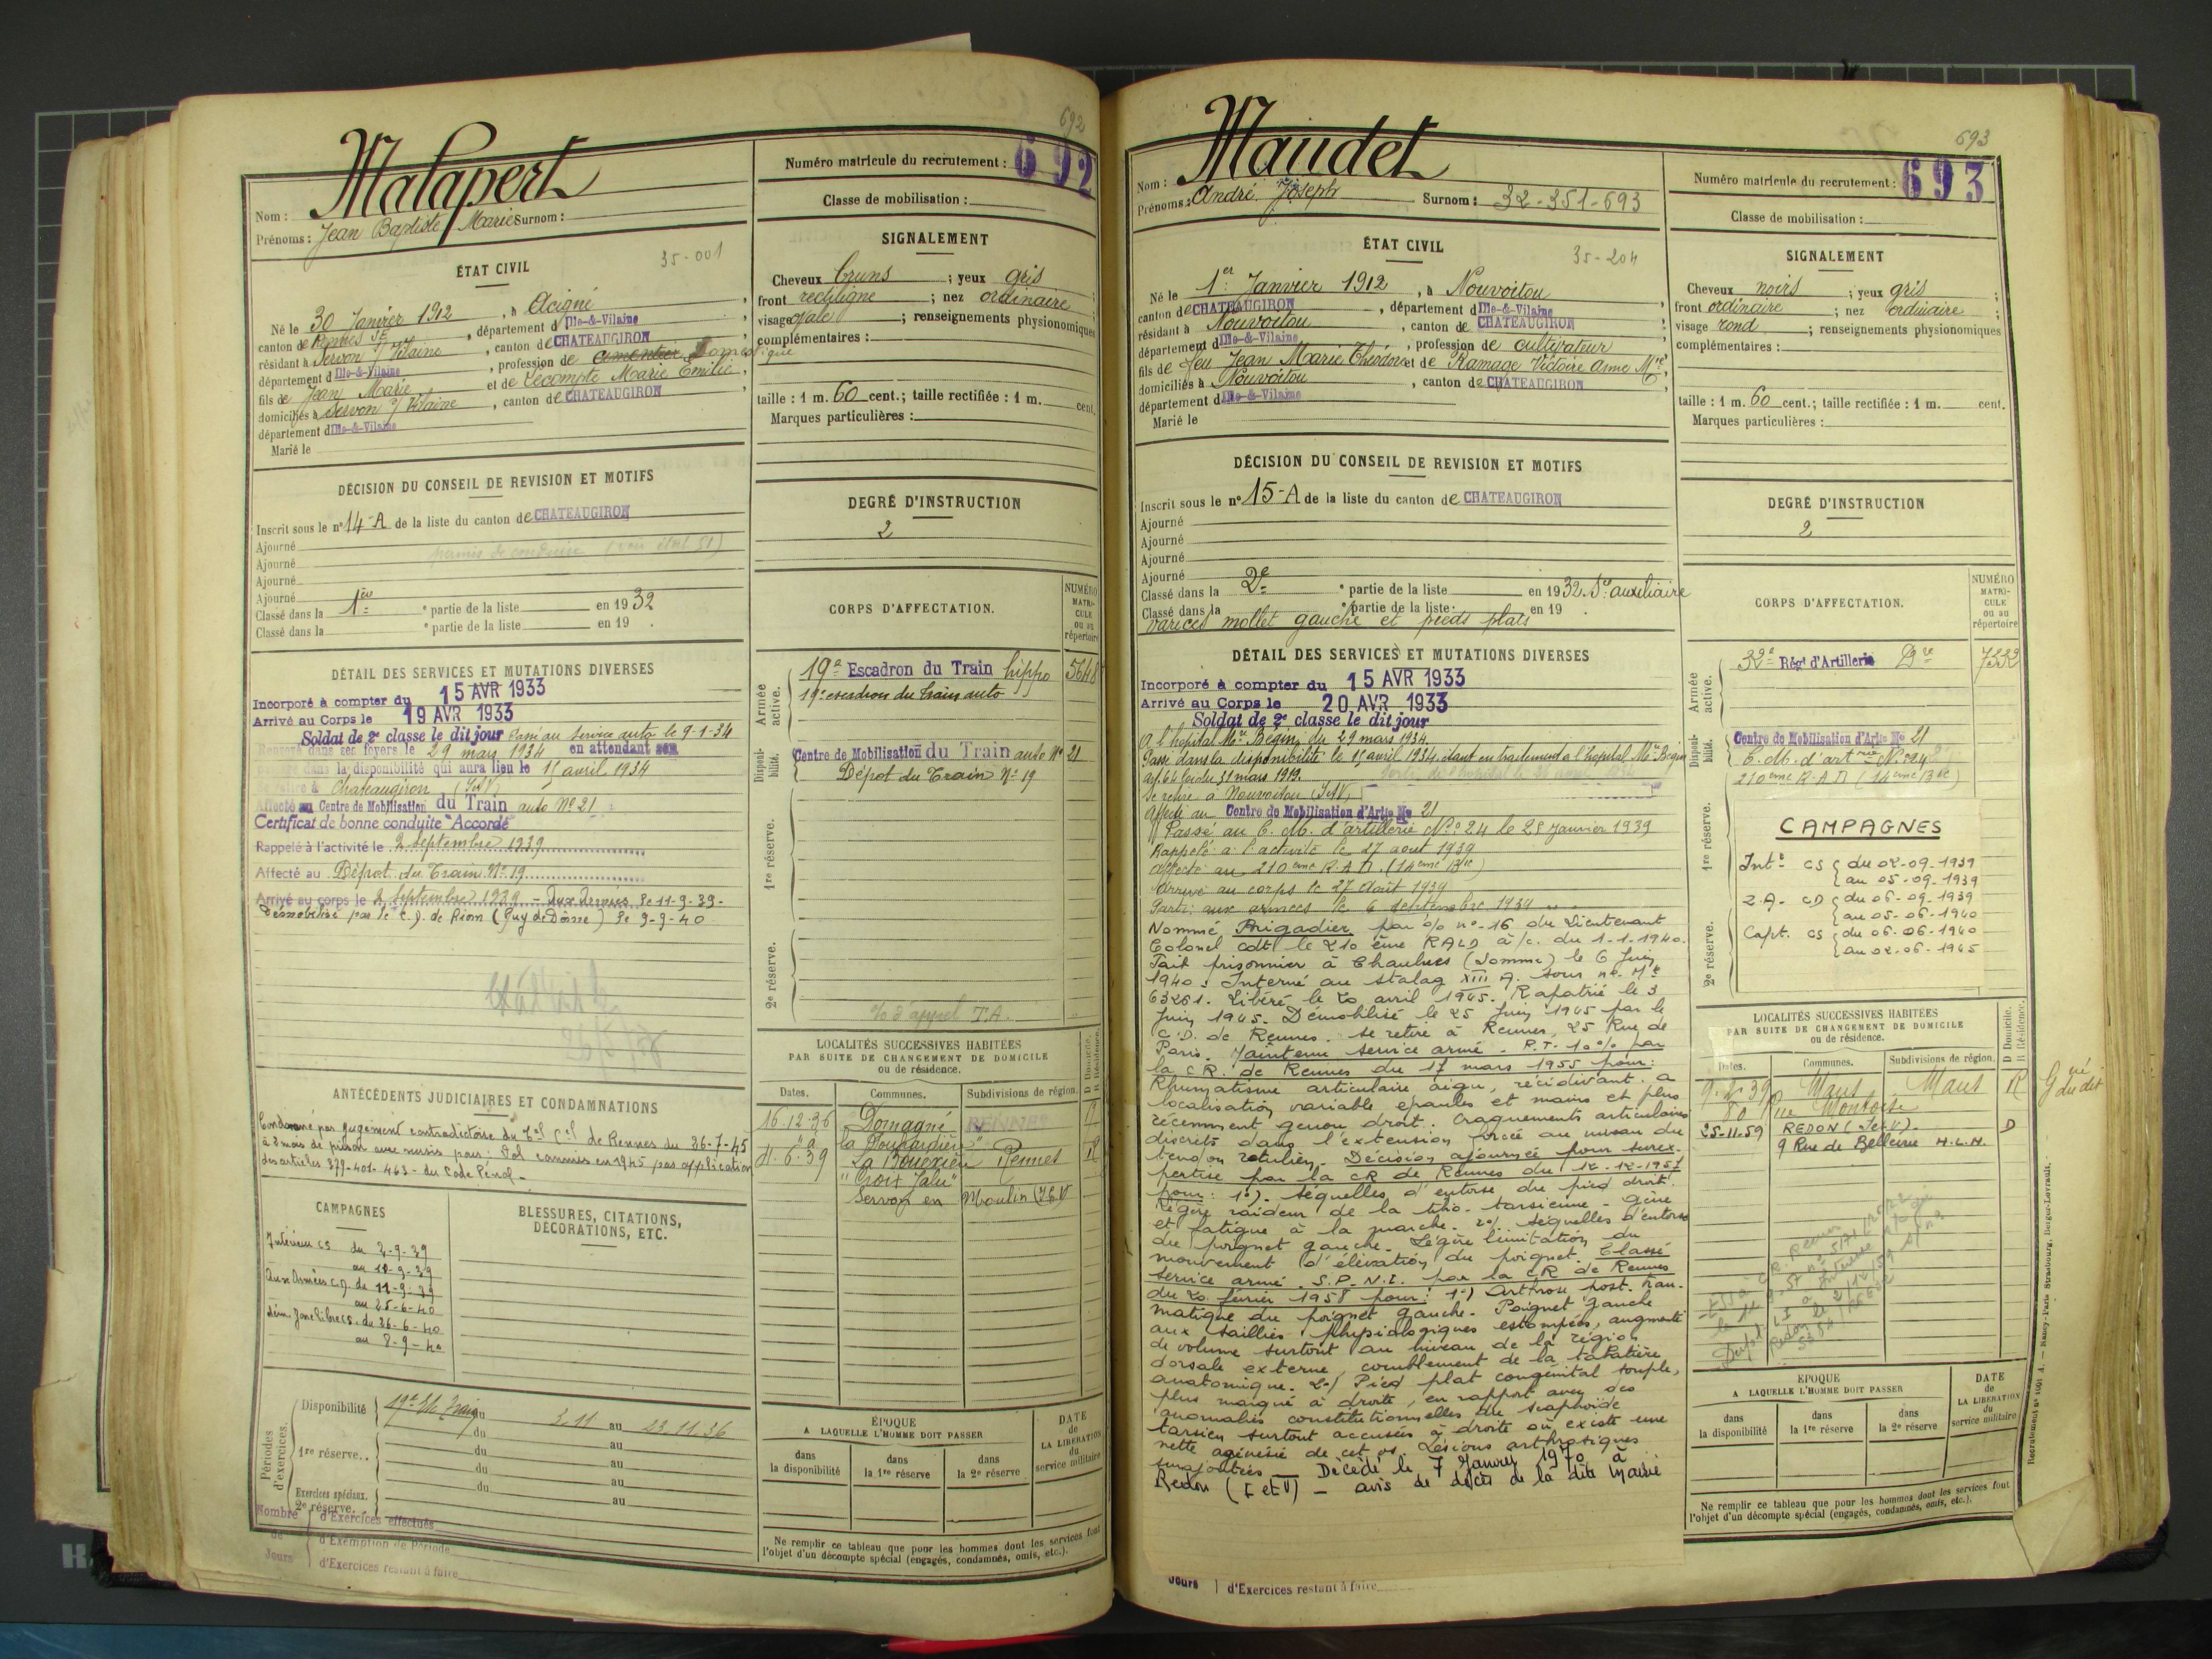 692
Nom : Malapert
Prénoms : Jean Baptiste Marie Surnom :
35-001
ÉTAT CIVIL
Né le 30 Janvier 1912, à Acigné,
canton de Rennes SE, département d'Ille-&-Vilaine,
résidant à Servon s/ Vilaine, canton de CHATEAUGIRON
département d'Ille-&-Vilaine, profession de Domestique
fils de Jean Marie et de Lecompte Marie Emilie,
domiciliés à Servon s/ Vilaine, canton de CHATEAUGIRON,
département d'Ille-&-Vilaine
Marié le
DÉCISION DU CONSEIL DE REVISION ET MOTIFS
Inscrit sous le n° 14-A de la liste du canton de CHATEAUGIRON
Ajourné
permis de conduire (voir état 51)
Ajourné
Ajourné
Ajourné
Classé dans la 1ère partie de la liste en 1932
Classé dans la ° partie de la liste en 19 .
DÉTAIL DES SERVICES ET MUTATIONS DIVERSES
Incorporé à compter du 15 AVR 1933
Arrivé au Corps le 19 AVR 1933
Soldat de 2e classe le dit jour Passé au service auto le 9-1-34
Renvoyé dans ses foyers le 29 mars 1934 en attendant son
passage dans la disponibilité qui aura lieu le 15 avril 1934
Se retire à Chateaugiron (I&V)
Affecté au Centre de Mobilisation du Train auto N° 21
Certificat de bonne conduite "Accordé"
Rappelé à l'activité le 2 septembre 1939
Affecté au Dépôt du Train N° 19
Arrivé au corps le 2 septembre 1939 - Aux Armées le 11-9-39-
Démobilisé par le C.D. de Riom (Puy de Dôme) le 9-9-40
ANTÉCÉDENTS JUDICIAIRES ET CONDAMNATIONS
Condamné par jugement contradictoire du Tal Cel de Rennes du 26-7-45
à 2 mois de prison avec sursis pour : Vol commis en 1945 par application
des articles 379-401-463- du Code Pénal-
CAMPAGNES
Intérieur CS du 2-9-39
au 10-9-39
Aux Armées C.D. de 11-9-39
au 25-6-40
Zone libre CS. du 26-6-40
au 8-9-40
BLESSURES, CITATIONS,
DÉCORATIONS, ETC.
Périodes d'exercices.
Disponibilité 19e Un Train du 3.11 au 23.11.36
du au
1re réserve.. du au
du au
du au
Exercices spéciaux.
2e réserve. au
Nombre de Jours
d'Exercices effectués
d'Exemption de Période
d'Exercices restant à faire
Numéro matricule du recrutement : 692
Classe de mobilisation :
SIGNALEMENT
Cheveux bruns ; yeux gris ;
front rectiligne ; nez ordinaire ;
visage ovale ; renseignements physionomiques
complémentaires :
taille : 1 m. 60 cent.; taille rectifiée : 1 m. cent.
Marques particulières :
DEGRÉ D'INSTRUCTION
2
CORPS D'AFFECTATION.
NUMÉRO MATRICULE ou au répertoire
Armée active.
19e Escadron du Train hippo 5648
19e escadron du Train auto
Disponibilité.
Centre de Mobilisation du Train auto N° 21
Dépôt du Train N° 19
1re réserve.
2e réserve.
LOCALITÉS SUCCESSIVES HABITÉES
PAR SUITE DE CHANGEMENT DE DOMICILE
ou de résidence.
D Domicile. R Résidence.
Dates. Communes. Subdivisions de région.
16-12-36 Domagné RENNES R
21-6-39 La Bouëxière Rennes R
Servon en
ÉPOQUE
A LAQUELLE L'HOMME DOIT PASSER
dans la disponibilité
dans la 1re réserve
dans la 2e réserve
DATE de LA LIBERATION du service militaire
Ne remplir ce tableau que pour les hommes dont les services font
l'objet d'un décompte spécial (engagés, condamnés, omis, etc.).
693
Nom : Maudet
Prénoms : André Joseph Surnom : 32-351-693
35-204
ÉTAT CIVIL
Né le 1er Janvier 1912, à Nouvoitou
canton de CHATEAUGIRON, département d'Ille-&-Vilaine,
résidant à Nouvoitou, canton de CHATEAUGIRON
département d'Ille-&-Vilaine, profession de cultivateur
fils de feu Jean Marie Théodore et de Ramage Victoire Anne Mie,
domiciliés à Nouvoitou, canton de CHATEAUGIRON
département d'Ille-&-Vilaine
Marié le
DÉCISION DU CONSEIL DE REVISION ET MOTIFS
Inscrit sous le n° 15-A de la liste du canton de CHATEAUGIRON
Ajourné
Ajourné
Ajourné
Ajourné
Classé dans la 2e partie de la liste en 1932 Sce auxiliaire
Classé dans la ° partie de la liste: en 19 .
varices mollet gauche et pieds plats
DÉTAIL DES SERVICES ET MUTATIONS DIVERSES
Incorporé à compter du 15 AVR 1933
Arrivé au Corps le 20 AVR 1933
Soldat de 2e classe le dit jour
A l'hôpital Mre Bégin du 29 mars 1934
Passé dans la disponibilité le 15 avril 1934 étant en traitement à l'hôpital Mre Bégin
art. 64 loi du 31 mars 1919.
Se retire à Nouvoitou (I&V)
Affecté au Centre de Mobilisation d'Artie No 21
Passé au C. M. d'artillerie N° 24 le 25 Janvier 1939
Rappelé à l'activité le 27 aout 1939
affecté au 210eme R.A.D. (14eme Bie)
Arrivé au corps le 27 Août 1939
Parti aux armées le 6 septembre 1939
Nommé Brigadier par O/o n°-16 du Lieutenant
Colonel cdt le 210 ème RALD à/c. du 1-1-1940.
Fait prisonnier à Chaulnes (Somme) le 6 Juin
1940. Interné au stalag XIII A. sous n°. Mle
63261. Libéré le 20 avril 1945. Rapatrié le 3
Juin 1945. Démobilisé le 25 Juin 1945 par le
C.D. de Rennes. se retire à Rennes, 25 Rue de
Paris. Maintenu service armé. P.T. 10% par
la CR. de Rennes du 17 mars 1955 pour:
Rhumatisme articulaire aigu, récidivant. à
localisation variable epaules et mains et plus
récemment genou droit. Craquements articulaires
discrets dans l'extension forcée au niveau du
tendon rotulien. Décision ajournée pour surex-
pertise par la CR de Rennes du 12-12-1957
pour: 1°). Séquelles d'entorse du pied droit.
Légère raideur de la tibio-tarsienne. Gêne
et fatigue à la marche. 2°/. séquelles d'entorse
du poignet gauche. Légère limitation du
mouvement d'élévation du poignet. Classé
service armé. S.P.N.I. par la CR de Rennes
du 20 février 1958 pour: 1°) Arthrose post-trau-
matique du poignet gauche. Poignet gauche
aux saillies physiologiques estompées, augmenté
de volume surtout au niveau de la région
dorsale externe, comblement de la tabatière
anatomique. 2°/ Pied plat congénital souple,
plus marqué à droite, en rapport avec des
anomalies constitutionnelles du scaphoïde
tarsien surtout accusées à droite où existe une
nette agénésie de cet os. Lésions arthrosiques
surajoutées — Décédé le 7 Janvier 1970 à
Redon (I et V) - avis de décès de la dite Mairie
Jours d'Exercices restant à faire
Numéro matricule du recrutement : 693
Classe de mobilisation :
SIGNALEMENT
Cheveux noirs ; yeux gris ;
front ordinaire ; nez ordinaire ;
visage rond ; renseignements physionomiques
complémentaires :
taille : 1 m. 60 cent.; taille rectifiée : 1 m. cent.
Marques particulières :
DEGRÉ D'INSTRUCTION
2
CORPS D'AFFECTATION.
NUMÉRO MATRICULE ou au répertoire
Armée active.
32e Régt d'Artillerie Dre 7332
Disponibilité.
Centre de Mobilisation d'Artie No 21
C. M. d'artrie N° 24
210eme R.A.D (14eme Bie)
1re réserve.
2e réserve.
CAMPAGNES
Intr CS du 02-09-1939
au 05-09-1939
Z.A. CD du 06-09-1939
au 05-06-1940
Capt. CS du 06-06-1940
au 02-06-1945
LOCALITÉS SUCCESSIVES HABITÉES
PAR SUITE DE CHANGEMENT DE DOMICILE
ou de résidence.
D Domicile. R Résidence.
Dates. Communes. Subdivisions de région.
9-2-39 Mans Mans R Gné du dit
80 Rue Montoise
25-11-59 REDON (I et V) D
9 Rue de Bellevue H.L.M.
ÉPOQUE
A LAQUELLE L'HOMME DOIT PASSER
dans la disponibilité
dans la 1re réserve
dans la 2e réserve
DATE de LA LIBÉRATION du service militaire
Ne remplir ce tableau que pour les hommes dont les services font
l'objet d'un décompte spécial (engagés, condamnés, omis, etc.).
Nancy-Paris Strasbourg, Berger-Levrault.